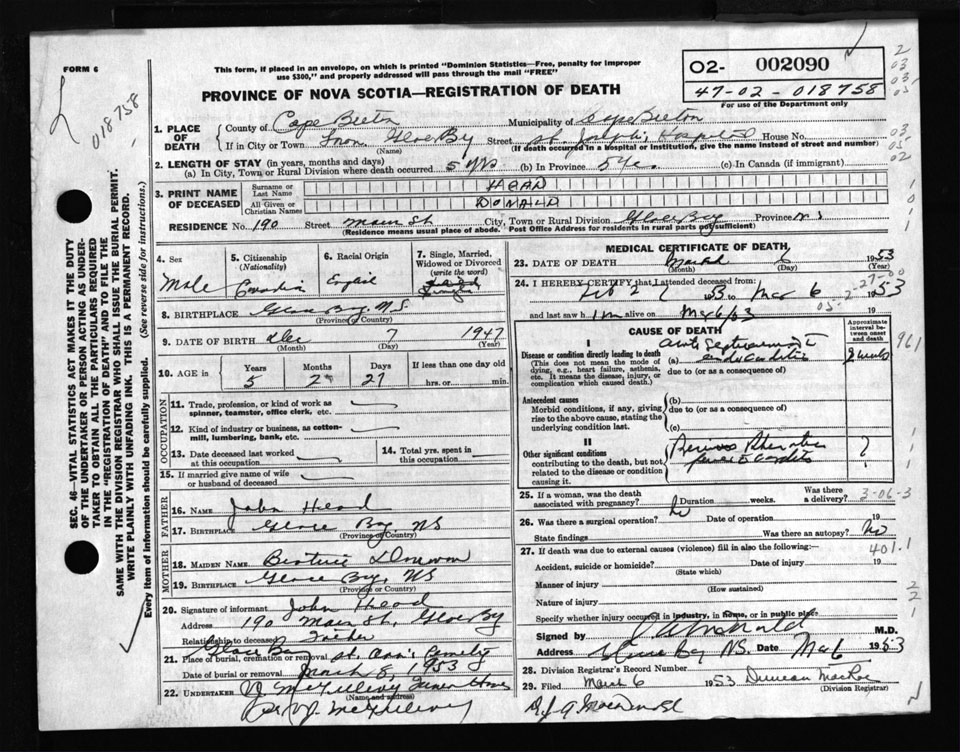 FORM 6
This form, if placed in an envelope, on which is printed "Dominion Statistics—Free, penalty for improper
use $300," and properly addressed will pass through the mail "FREE"
PROVINCE OF NOVA SCOTIA—REGISTRATION OF DEATH
O2- 002090
47-02-018758
For use of the Department only
018758
1. PLACE OF DEATH
County of Cape Breton Municipality of Cape Breton
If in City or Town Glace Bay Street St. Joseph's Hospital House No.
(Name) (If death occurred in a Hospital or Institution, give the name instead of street and number)
2. LENGTH OF STAY (in years, months and days)
(a) In City, Town or Rural Division where death occurred 5 yrs (b) In Province 5 yrs. (c) In Canada (if immigrant)
3. PRINT NAME OF DECEASED
Surname or Last Name HEAD
All Given or Christian Names DONALD
RESIDENCE No. 190 Street Main St City, Town or Rural Division Glace Bay Province N S
(Residence means usual place of abode. Post Office Address for residents in rural parts not sufficient)
4. Sex Male
5. Citizenship (Nationality) Canadian
6. Racial Origin English
7. Single, Married, Widowed or Divorced (write the word) Single
8. BIRTHPLACE Glace Bay, N S
(Province or Country)
9. DATE OF BIRTH Dec 7 1947
(Month) (Day) (Year)
10. AGE in Years 5 Months 2 Days 27 If less than one day old hrs. or min.
OCCUPATION
11. Trade, profession, or kind of work as spinner, teamster, office clerk, etc.
12. Kind of industry or business, as cotton-mill, lumbering, bank, etc.
13. Date deceased last worked at this occupation
14. Total yrs. spent in this occupation
15. If married give name of wife or husband of deceased
FATHER
16. NAME John Head
17. BIRTHPLACE Glace Bay, NS
(Province or Country)
MOTHER
18. MAIDEN NAME Donovan
19. BIRTHPLACE Glace Bay, NS
(Province or Country)
20. Signature of informant John Head
Address 190 Main St. Glace Bay
Relationship to deceased Father
Glace Bay
21. Place of burial, cremation or removal St. Ann's Cemetery
Date of burial or removal March 8, 1953
22. UNDERTAKER
(Name and address)
MEDICAL CERTIFICATE OF DEATH
23. DATE OF DEATH March 6 1953
(Month) (Day) (Year)
24. I HEREBY CERTIFY that I attended deceased from:
Feb 27 1953 to Mar 6 1953
and last saw him alive on Mar 6/53
CAUSE OF DEATH
Approximate interval between onset and death
I
Disease or condition directly leading to death
(This does not mean the mode of dying, e.g., heart failure, asthenia, etc. It means the disease, injury, or complication which caused death.)
(a) endocarditis 2 weeks
due to (or as a consequence of)
Antecedent causes
Morbid conditions, if any, giving rise to the above cause, stating the underlying condition last.
(b)
due to (or as a consequence of)
(c)
II
Other significant conditions
contributing to the death, but not related to the disease or condition causing it.
Previous Rheumatic
fever carditis ?
25. If a woman, was the death associated with pregnancy? Duration weeks. Was there a delivery? 3-06-3
26. Was there a surgical operation? No Date of operation 19
State findings Was there an autopsy? No
27. If death was due to external causes (violence) fill in also the following:— 401.1
Accident, suicide or homicide? Date of injury 19
(State which)
Manner of injury
(How sustained)
Nature of injury
Specify whether injury occurred in industry, in home, or in public place
Signed by M.D.
Address Glace Bay NS. Date Mar 6 1953
28. Division Registrar's Record Number
29. Filed March 6 1953 Duncan MacRae
(Division Registrar)
SEC. 46—VITAL STATISTICS ACT MAKES IT THE DUTY
OF THE UNDERTAKER OR PERSON ACTING AS UNDER-
TAKER TO OBTAIN ALL THE PARTICULARS REQUIRED
IN THE "REGISTRATION OF DEATH" AND TO FILE THE
SAME WITH THE DIVISION REGISTRAR WHO SHALL ISSUE THE BURIAL PERMIT.
WRITE PLAINLY WITH UNFADING INK. THIS IS A PERMANENT RECORD.
Every item of information should be carefully supplied. (See reverse side for instructions.)